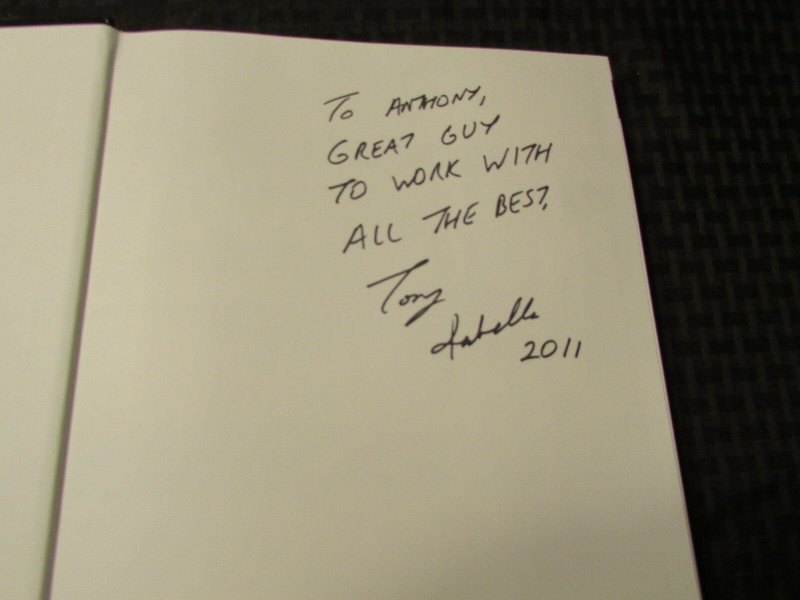 To ANTHONY,
GREAT GUY
TO WORK WITH
ALL THE BEST,
Tony
Isabella
2011